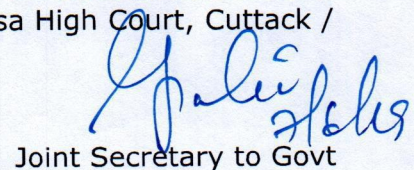 sa High Court, Cuttack /
Joint Secretary to Govt